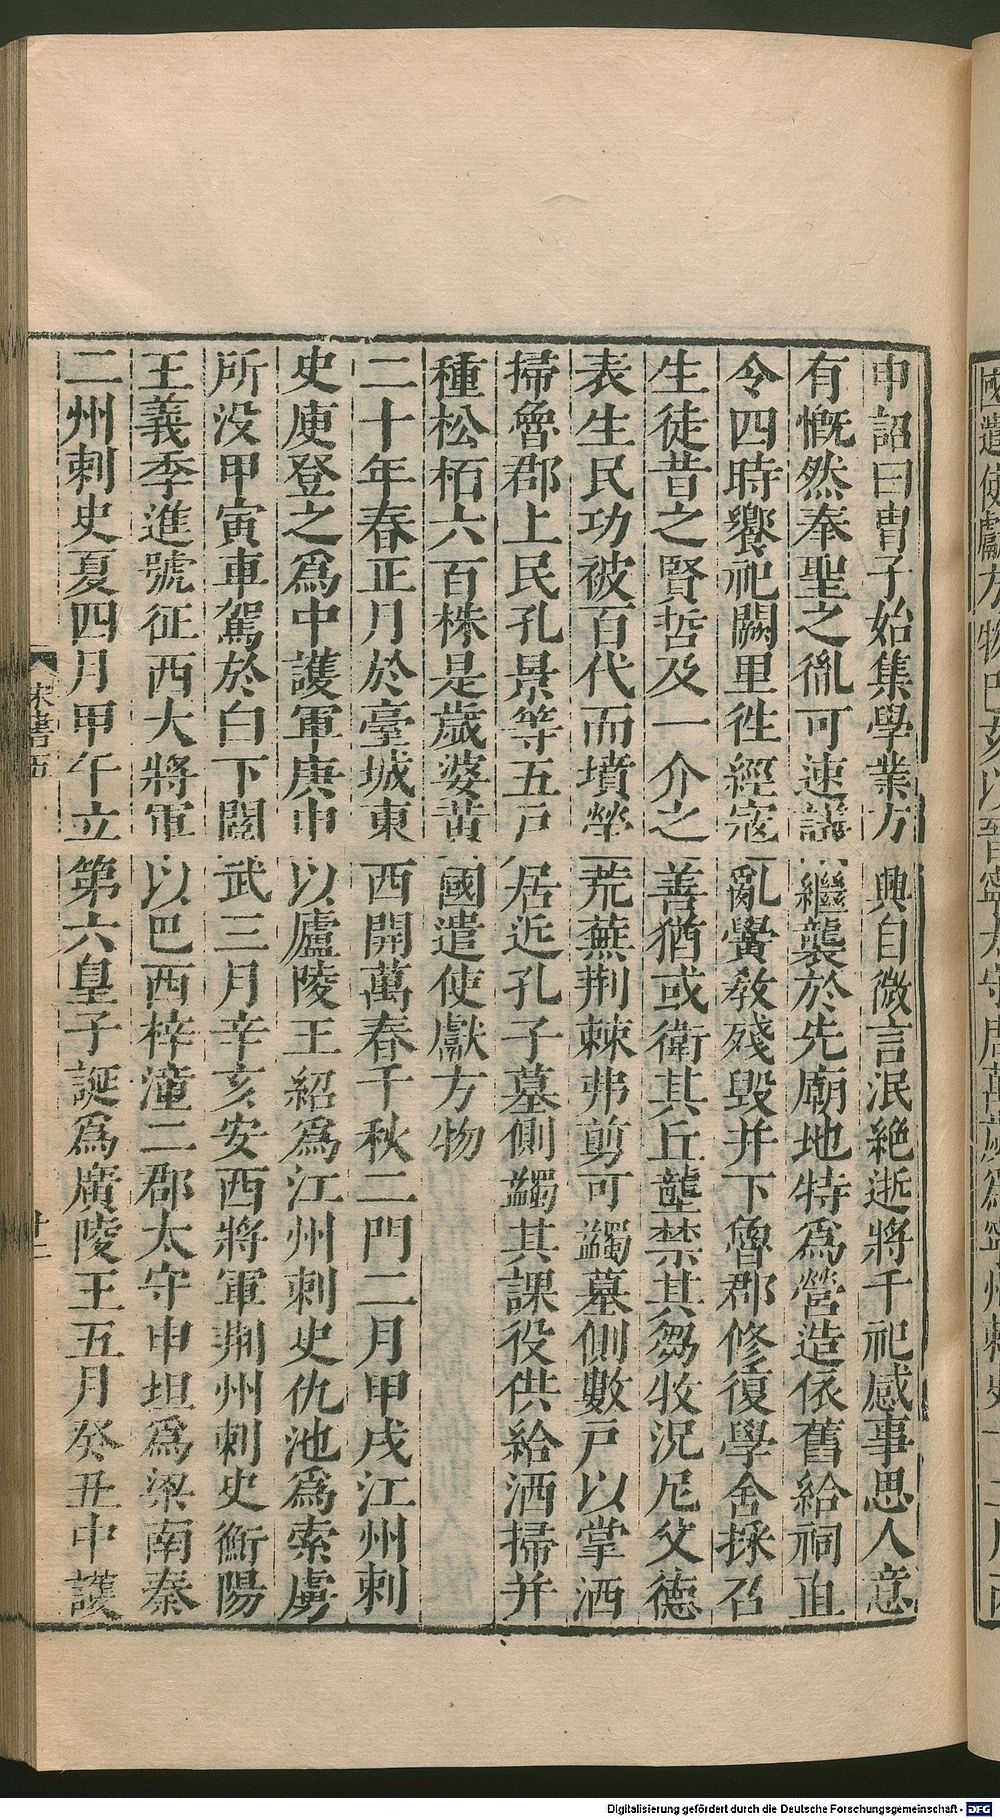 申詔曰胄子始集學業方興自微言泯絶逝將千祀感事思人意
有慨然奉聖之胤可速議繼襲於先廟地特爲營造依舊給祠直
令四時饗祀闕里徃經寇亂黌敎殘毀并下魯郡修復學舍採召
生徒昔之賢哲及一介之善猶或衛其丘壟禁其芻牧況尼父德
表生民功被百代而墳塋荒蕪荆棘弗剪可蠲墓側數戸以掌洒
掃魯郡上民孔景等五戸居近孔子墓側蠲其課役供給洒掃并
種松栢六百株是歲婆黄國遣使獻方物
二十年春正月於臺城東西開萬春千秋二門二月甲戌江州刺
史庾登之爲中護軍庚申以廬陵王紹爲江州刺史仇池爲索虜
所没甲寅車駕於白下閲武三月辛亥安西將軍荆州刺史衡陽
王義季進號征西大將軍以巴西梓潼二郡太守申坦爲梁南秦
二州刺史夏四月甲午立第六皇子誕爲廣陵王五月癸丑中護
宋書五
廿二
Digitalisierung gefördert durch die Deutsche Forschungsgemeinschaft - DFG